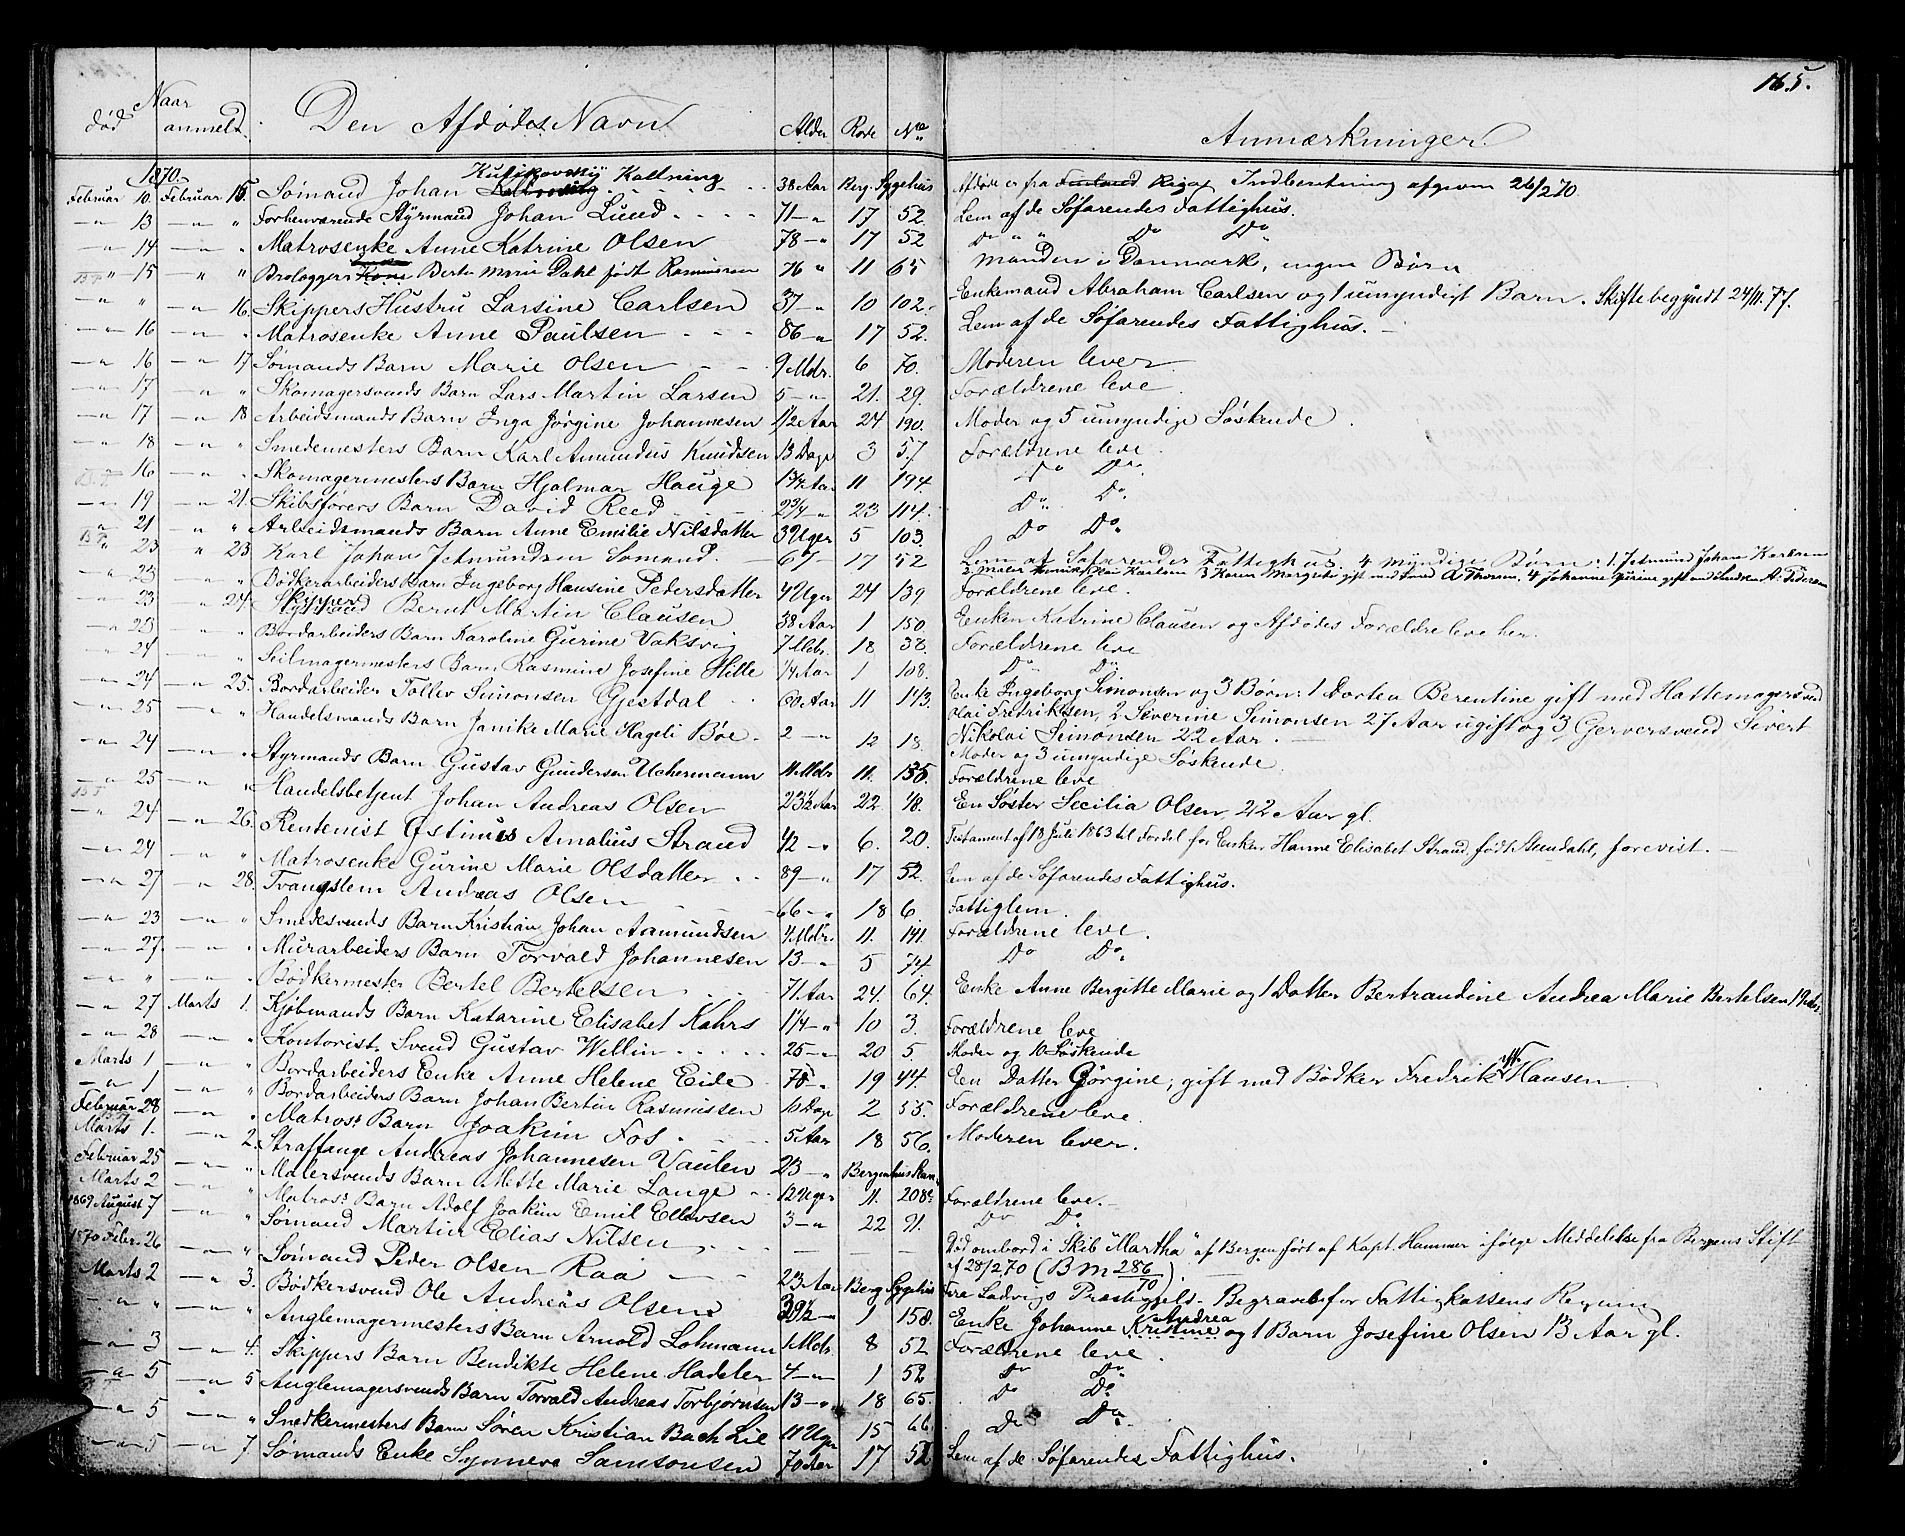 165.
Naar
død anmeld. Den Afdødes Navn Alder Rode No Anmærkninger.
1870. Kulikovskij Kattning
Februar 10. Februar 15. Sømand Johan 38 Aar Berg. Sygehus Afdøde er fra Finland Riga, Indberetning afgiven 26/2 70.
—"— 13 —"— " Forhenværende Styrmand Johan Lund 71 —" 17 52 Lem af de Søfarendes Fattighus.
—"— 14 —"— " Matrosenke Anne Katrine Olsen 78 —" 17 52 Do " " Do Do
" 15 " " Brolæggers Kone Berte Marie Dahl født Rasmussen 76 " 11 65 Manden i Danmark, ingen Børn
—"— " —"— 16. Skippers Hustru Larsine Carlsen 37 —" 10 102. Enkemand Abraham Carlsen og 1 umyndigt Barn. Skifte begyndt 24/11. 77.
—"— 16 —"— " Matrosenke Anne Paulsen 86 —" 17 52. Lem af de Søfarendes Fattighus. —
—"— 16 —"— 17 Sømands Barn Marie Olsen 9 Mdr. 6 70. Moderen lever
—"— 17 —"— " Skomagersvends Barn Lars Martin Larsen 5 —" 21. 29. Forældrene leve
—"— 17 —"— 18 Arbeidsmands Barn Inga Jørgine Johannesen 1/2 Aar 24 190. Moder og 5 umyndige Søskende.
—"— 18 —"— " Smedemesters Barn Karl Amundus Knudsen 13 Dage 3 57 Forældrene leve.
—"— 16 —"— " Skomagermesters Barn Hjalmar Hauge 1 3/4 Aar 11 194. Do Do
—"— 19 —"— 21. Skibsførers Barn David Reed 2 3/4 —" 23 114. Do Do
—"— 21 —"— " Arbeidsmands Barn Anne Emilie Nilsdatter 3 Uger 5 103. Do Do
" 23 " 23 Karl Johan Jetmundsen Sømand 67 17 52 Lem af Søfarendes Fattighus. 4 myndige Børn: 1. Jetmund Johan Karlsen
3 Karen Margrete gift med Smed A Thorsen. 4 Johanne Gurine gift med
—"— 23 " Bødkerarbeiders Barn Ingeborg Hansine Pedersdatter 4 Uger 24 139 Forældrene leve.
—"— 23 " 24. Skipper Bernt Martin Clausen 38 Aar 1 150 Enken Katrine Clausen og Afdødes Forældre leve her.
—"— 23 —"— " Bordarbeiders Barn Karoline Gurine Vaksvig 7 Mdr. 18 38. Forældrene leve
—"— 24 —"— " Seilmagermesters Barn Rasmine Josefine Hille 1/4 Aar 1 108. Do Do
—"— 24 —"— 25. Bordarbeider Tollev Simonsen Gjestdal 60 Aar 11 143. Enke Ingeborg Simonsen og 3 Børn: 1 Dortea Berentine gift med Hattemagersvend
Olai Fredriksen, 2 Severine Simonsen 27 Aar ugift og 3, Garversvend Sivert
—"— 25 —"— " Handelsmands Barn Janike Marie Hageli Bøe 2 —" 12 18. Nikolai Simonsen 22 Aar. —
Moder og 3 umyndige Søskende.
—"— 24 —"— " Styrmands Barn Gustav Gundersen Uchermann 11 Mdr. 11. 135. Forældrene leve
—"— 25 —"— " Handelsbetjent Johan Andreas Olsen 23 1/2 Aar 22 18. En Søster Secilia Olsen, 22 Aar gl.
" 24 —"— 26. Rentenist Østinus Amalius Strand 42 —" 6. 20. Testament af 13 Juli 1863 til Fordel for Enken Hanne Elisabet Strand, født Stendahl, forevist. —
—"— 24 —"— " Matrosenke Gurine Marie Olsdatter 89 —" 17 52. Lem af de Søfarendes Fattighus.
—"— 27 —"— 28. Tvangslem Andreas Olsen 66 —" 18 6. Fattiglem.
—"— 23 —"— " Smedesvends Barn Kristian Johan Aamundsen 4 Mdr. 11. 141. Forældrene leve.
—"— 27. —"— " Murarbeiders Barn Torvald Johannesen 13 —" 5 74 Do Do
—"— " —"— " Bødkermester Bertel Bertelsen 71 Aar 24. 64. Enke Anne Bergitte Marie og 1 Datter Bertrandine Andrea Marie Bertelsen
—"— 27 Marts 1. Kjøbmands Barn Katarine Elisabet Kahrs 1 1/4 —" 10 3. Forældrene leve
—"— 28 —"— " Kontorist Svend Gustav Wellin 25 —" 20 5. Moder og 10 Søskende
Marts 1 —"— " Bordarbeiders Enke Anne Helene Eide 75 " 19 44. En Datter Gørgine, gift med Bødker Fredrik Hansen
—"— 1 —"— " Bordarbeiders Barn Johan Bertin Rasmussen 10 Dage 2 55. Forældrene leve.
Februar 28 —"— " Matros Barn Joakim Fos 5 Aar 18 56. Moderen lever.
Marts 1. —"— 2. Straffange Andreas Johannesen Vaulen 23 —" Bergenhus
Februar 25 —"— " Malersvends Barn Mette Marie Lange 12 Uger 11. 208 Forældrene leve. —
Marts 2 —"— " Matros Barn Adolf Joakim Emil Ellevsen 3 —" 22 91. Do Do
1869 August 7 " Sømand Martin Elias Nilsen — — — Død ombord i Skib "Martha" af Bergen, ført af Kapt. Hammer ifølge Meddelelse fra Bergens Stift
af 28/2 70 (B M 286/70).
1870 Febr. 26 —"— " Sømand Peder Olsen Raa 23 Aar Berg. Sygehus Fra Ladvigs Præstegjeld. Begravet for Fattigkassens Regning
Marts 2 —"— 3. Bødkersvend Ole Andreas Olsen 39 1/2 —" 1 158. Enke Johanne Kristine Andrea og 1 Barn Josefine Olsen 13 Aar gl.
—"— " —"— " Anglemagermesters Barn Arnold Lohmann 1 Mdr. 8 52 Forældrene leve.
—"— 3 —"— 4. Skippers Barn Bendikte Helene Hadeler 4 —" 1 52 Do Do
—"— 5 —"— 5 Anglemagersvends Barn Torvald Andreas Torbjørnsen 13 —" 18 65. Do Do
—"— 5 —"— " Snedkermesters Barn Søren Kristian Bach Lie 11 Uger 15 66. Do Do
—"— 5 —"— 7. Sømands Enke Synneva Samsonsen 70 Aar 17 52 Lem af de Søfarendes Fattighus.